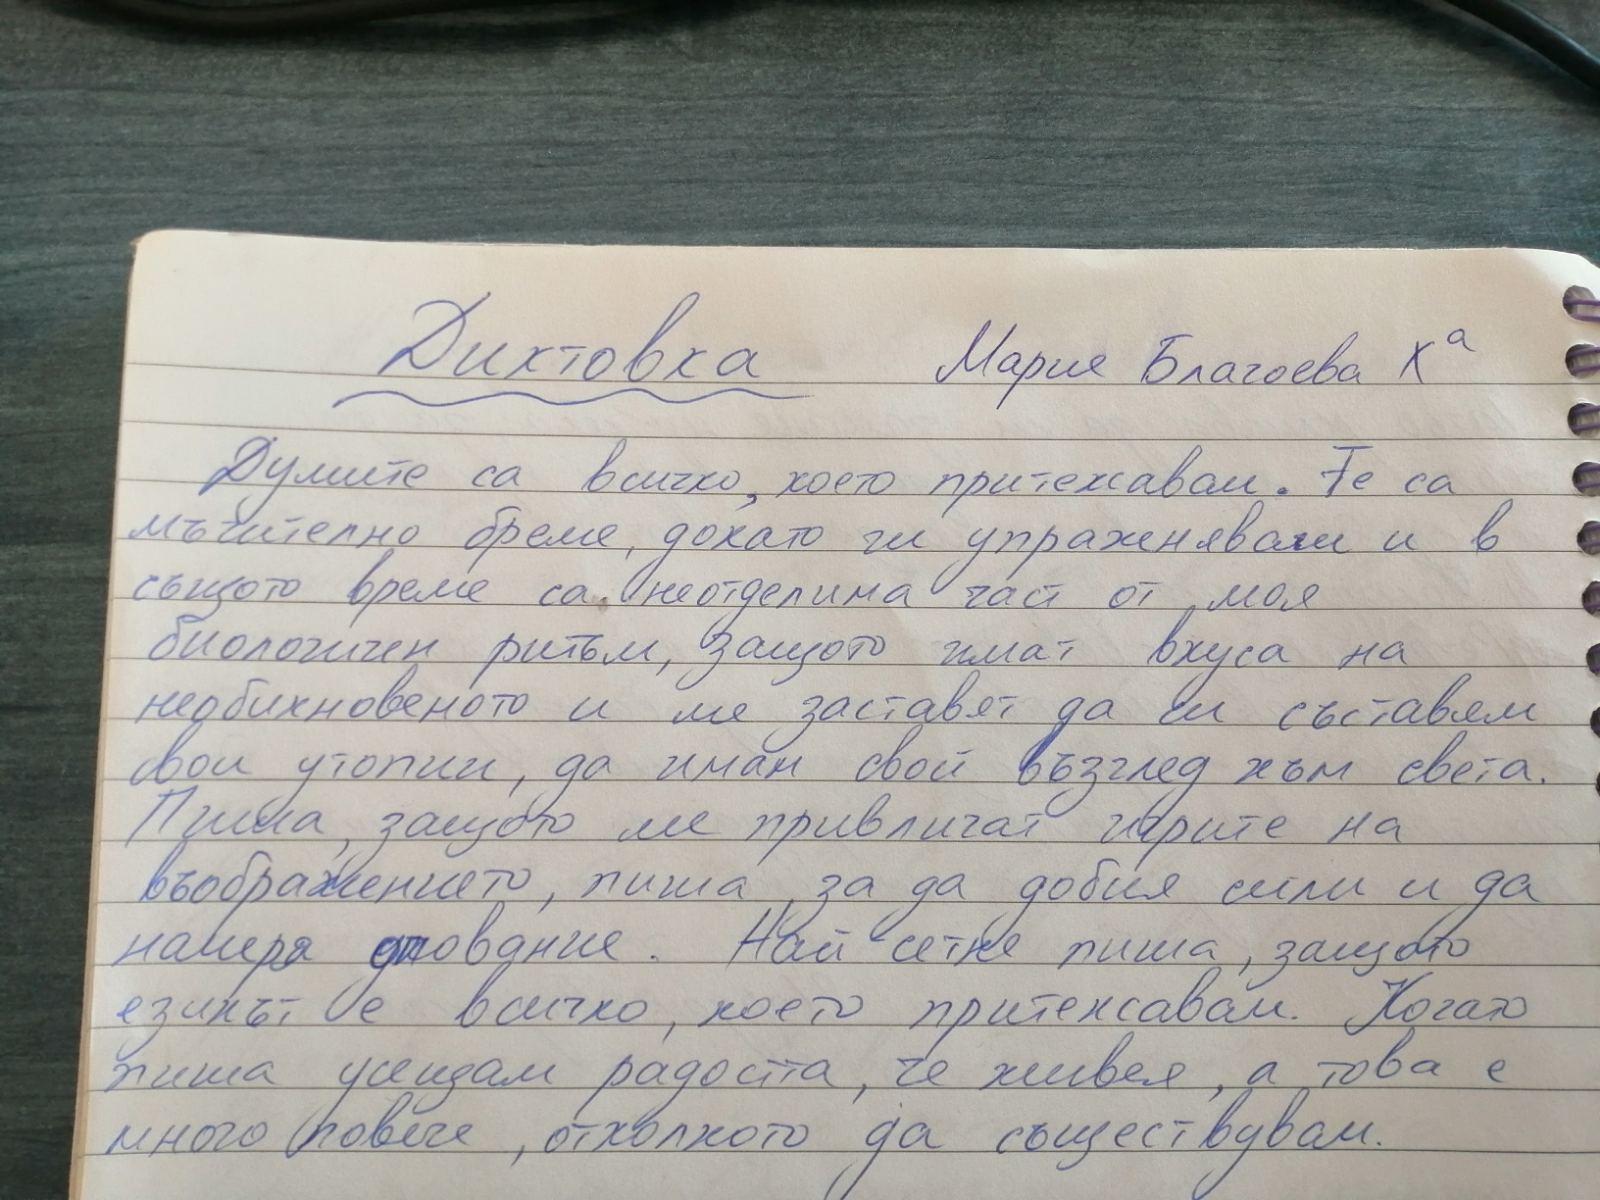 Диктовка Мария Благоева Xа
Думите са всичко, което притежавам. Те са
мъчително бреме, докато ги упражнявам и в
същото време са неотделима част от моя
биологичен ритъм, защото имат вкуса на
необикновеното и ме заставят да си съставям
свои утопии, да имам свой възглед към света.
Пиша, защото ме привличат игрите на
въображението, пиша, за да добия сили и да
намеря упование. Най-сетне пиша, защото
езикът е всичко, което притежавам. Когато
пиша усещам радостта, че живея, а това е
много повече, отколкото да съществувам.